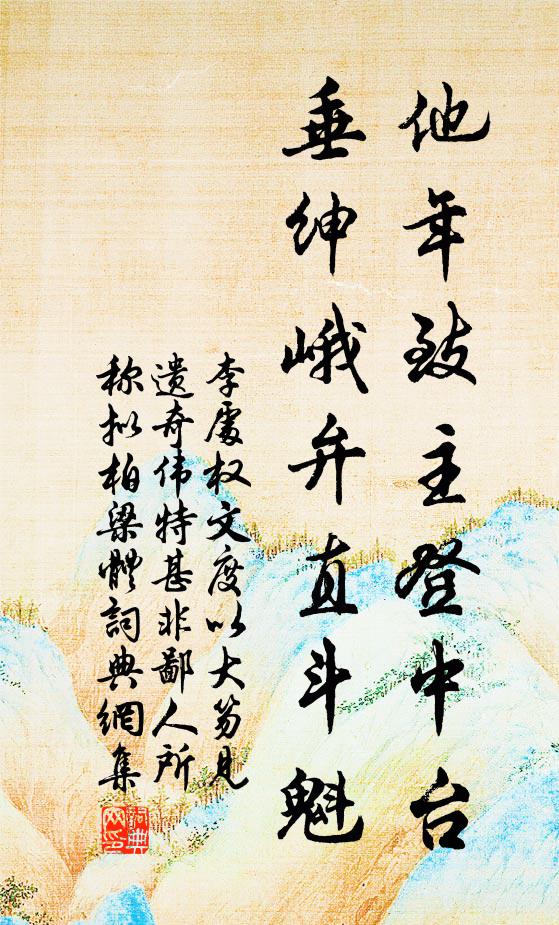 他年致主登中台
垂绅峨弁直斗魁
李处权文度以大笏见
遗奇伟特甚非鄙人所
称拟柏梁體詞典網集
詞典網印